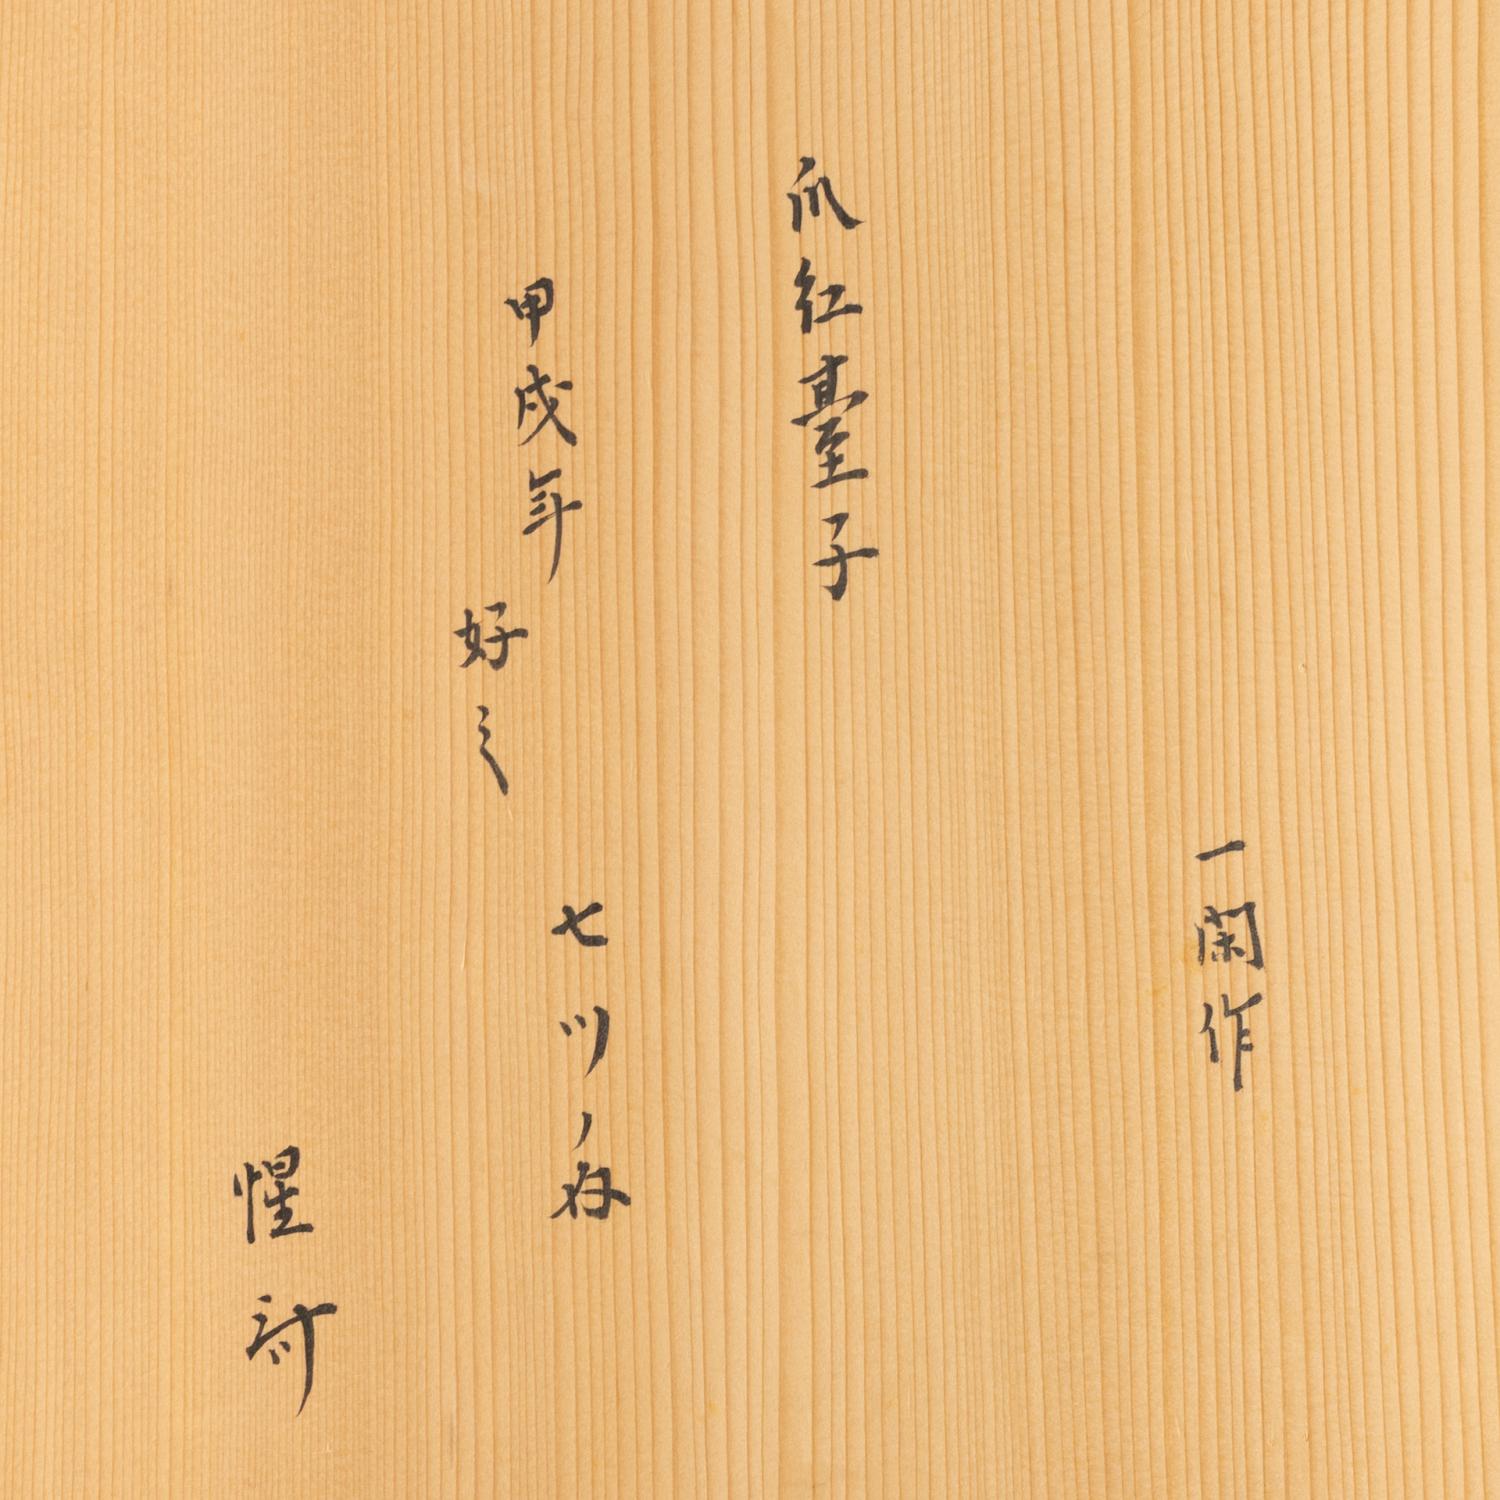 爪紅臺子
一閑作
甲戌年
好之
七ツノ内
惺斎